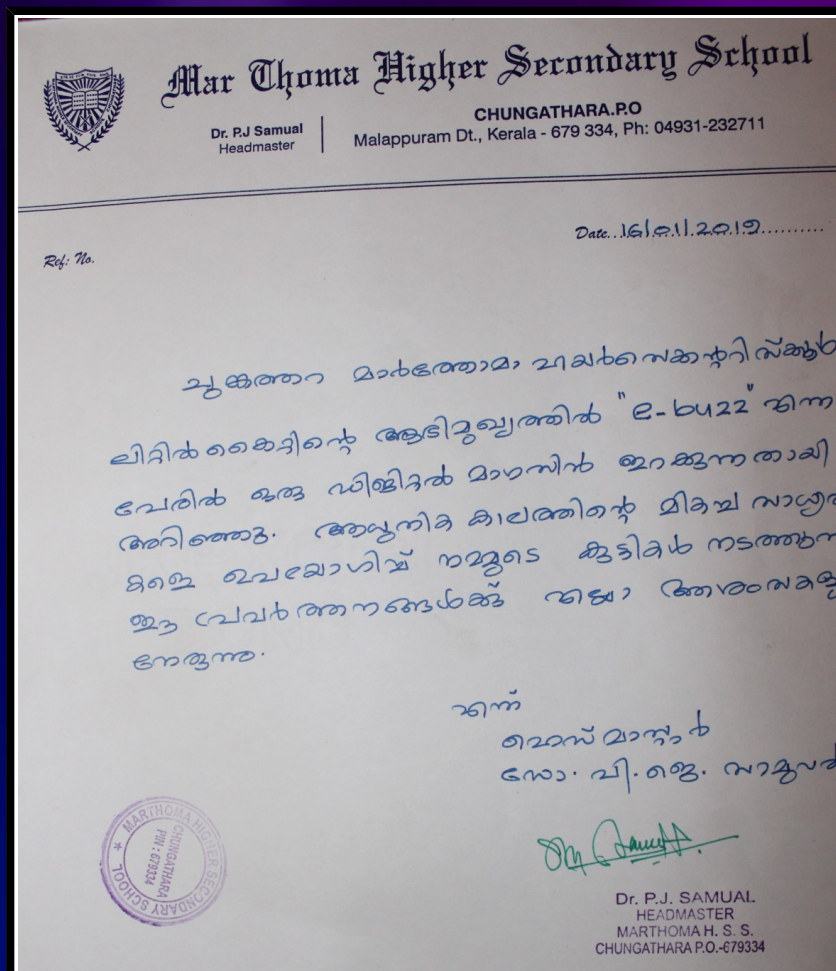 Mar Thoma Higher Secondary School
CHUNGATHARA.P.O
Dr. P.J Samual
Headmaster
Malappuram Dt., Kerala - 679 334, Ph: 04931-232711
Date...16/01/2019..........
Ref: No.
ചുങ്കത്തറ മാർത്തോമാ ഹയർസെക്കന്ററി സ്ക്കൂൾ
ലിറ്റിൽ കൈറ്റിന്റെ ആഭിമുഖ്യത്തിൽ "e-buzz" എന്ന
പേരിൽ ഒരു ഡിജിറ്റൽ മാഗസിൻ ഇറക്കുന്നതായി
അറിഞ്ഞു. ആധുനിക കാലത്തിന്റെ മികച്ച
കളെ ഉപയോഗിച്ച് നമ്മുടെ കുട്ടികൾ
ഈ പ്രവർത്തനങ്ങൾക്ക് എല്ലാ ആശംസകളും
നേരുന്നു.
എന്ന്
ഹെഡ് മാസ്റ്റർ
ഡോ. പി. ജെ. സാമുവൽ
MARTHOMA HIGHER SECONDARY SCHOOL
CHUNGATHARA
PIN : 679334
Dr. P.J. SAMUAL
HEADMASTER
MARTHOMA H. S. S.
CHUNGATHARA P.O.-679334